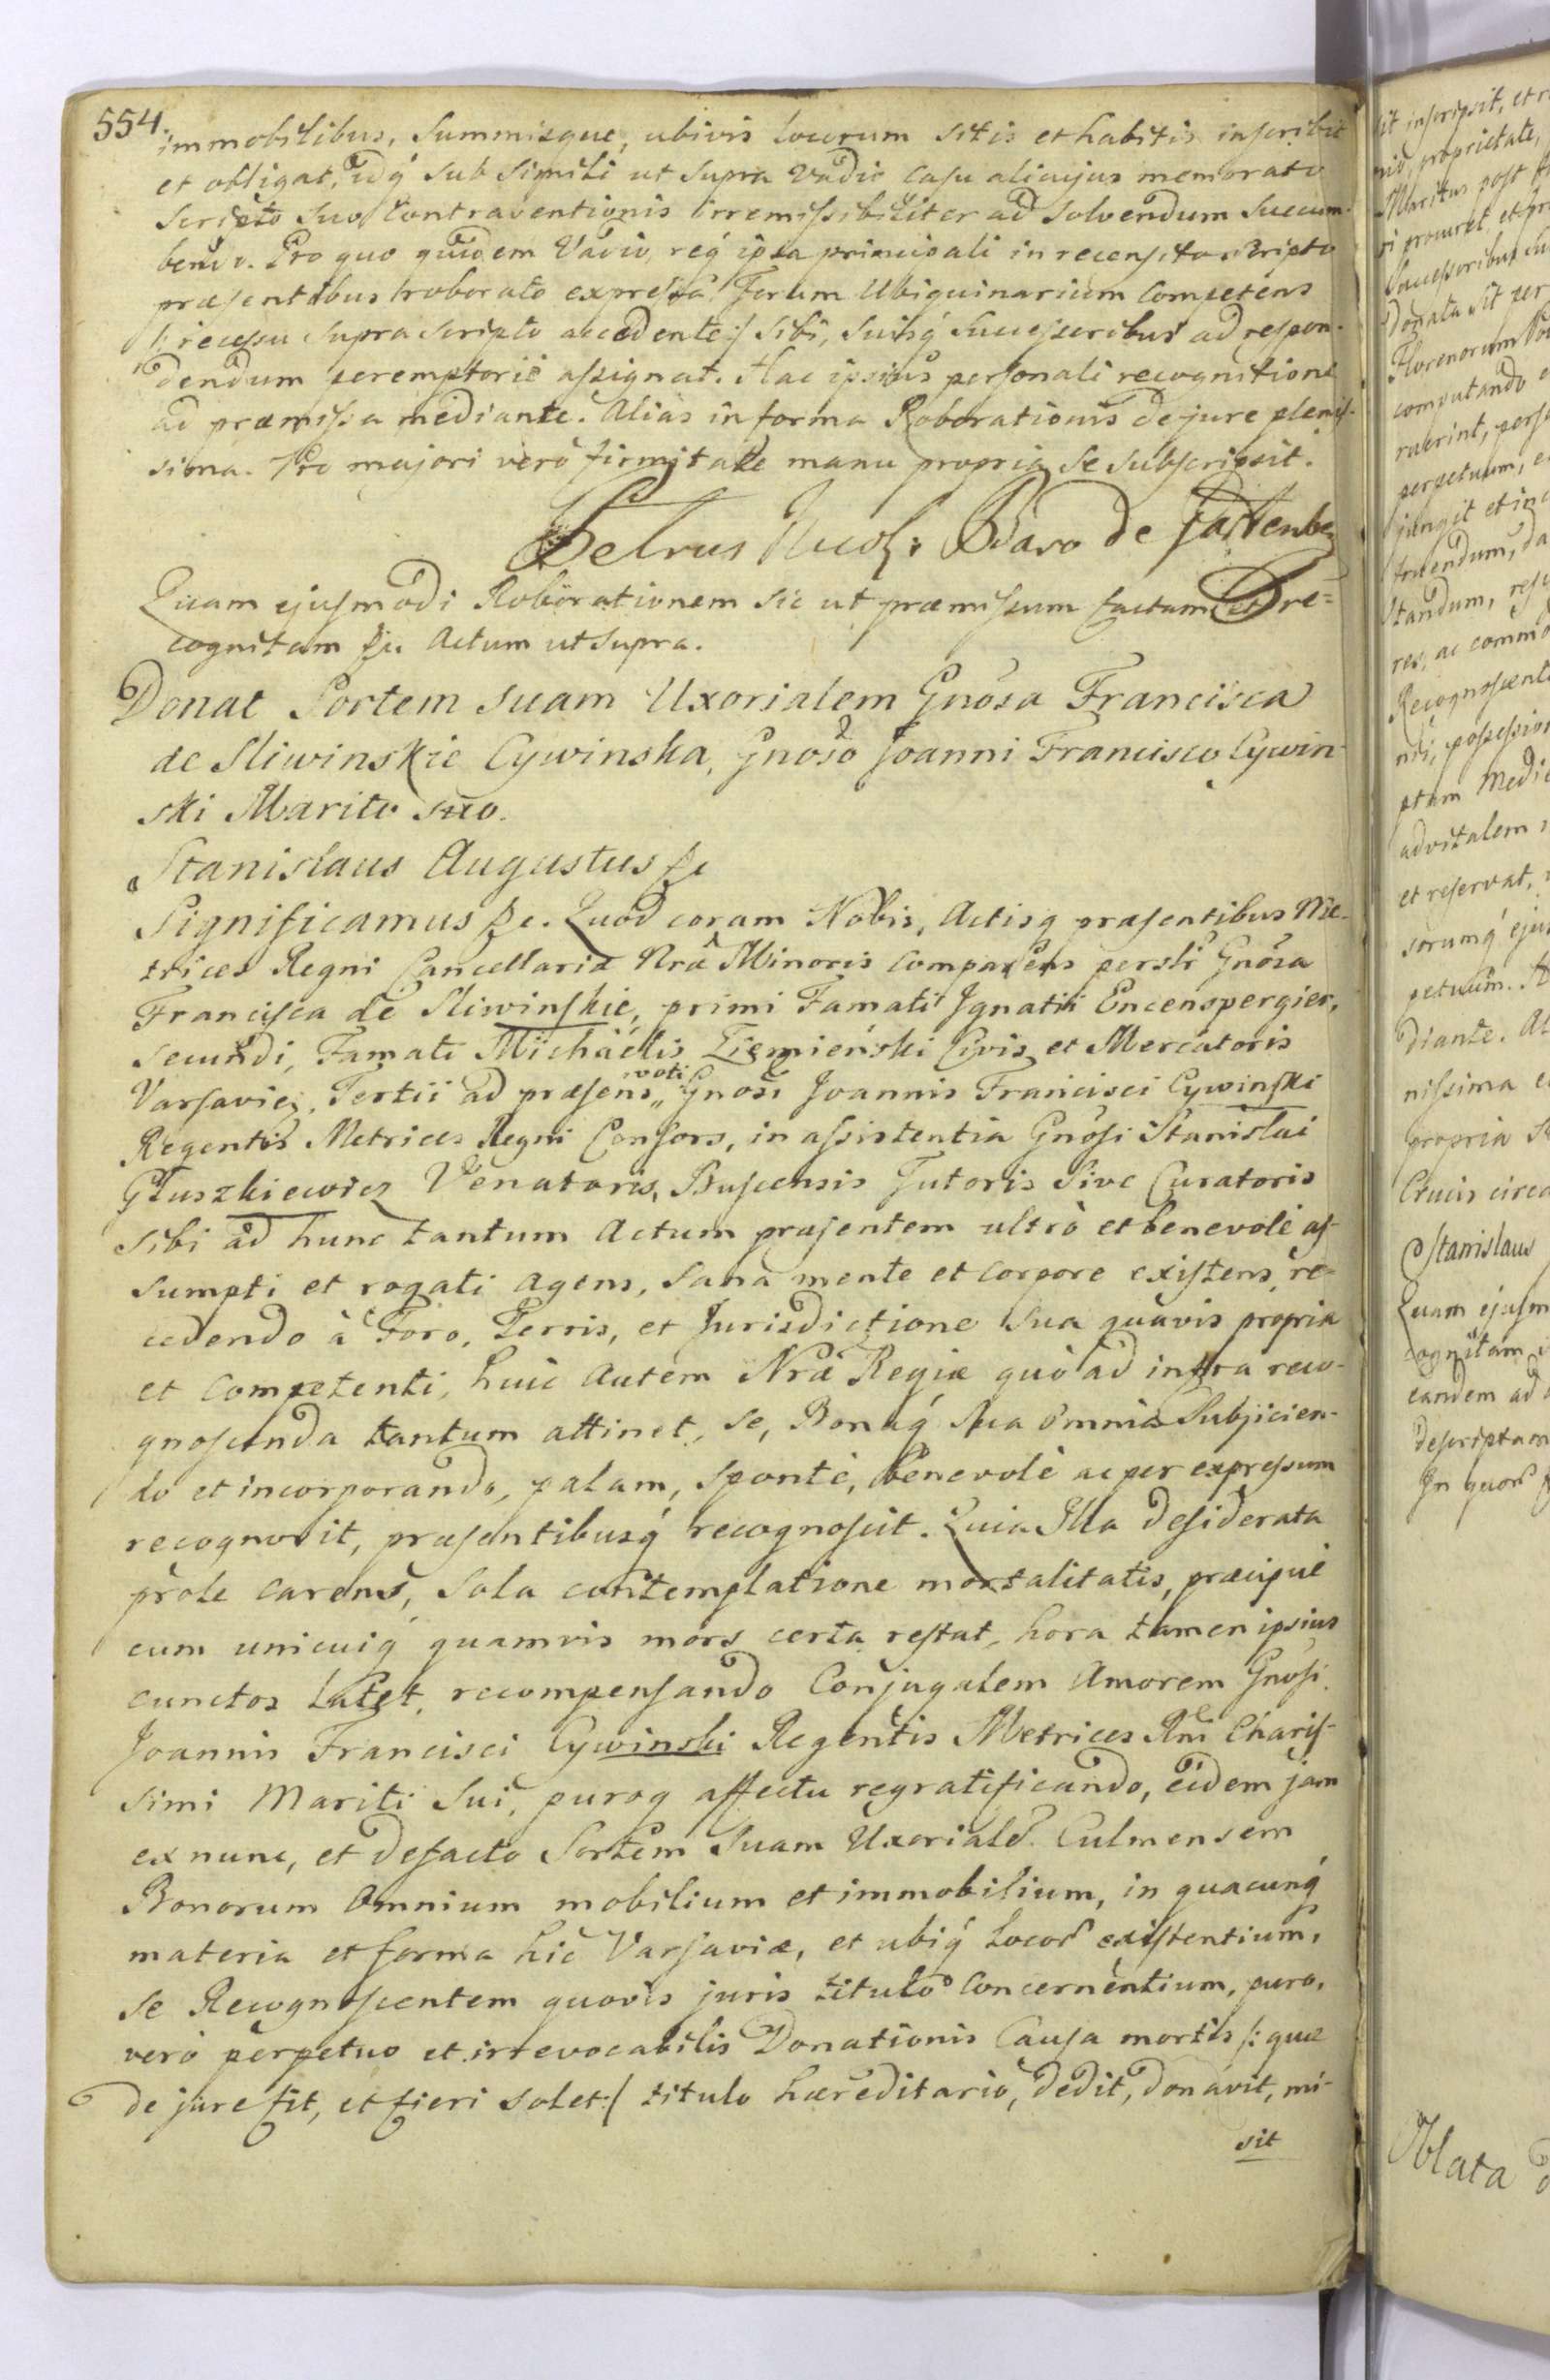 554.
immobilibus, Summisque, ubivis locorum sitis et habitis inscribit
et obligat, idq́ sub simili ut supra Vadio casu alicujus memorato
Scripto suo Contraventionis irremissibiliter ad solvendum succum-
bendo. Pro quo quidem Vadio, req́ ipsa principali in recensito scripto
præsentibus roborato expressa Forum Ubiquinarium Competens
/: recessu supra scripto accedente :/ sibi, suisq́ successoribus ad respon-
dendum peremptorie assignat. Hac ipsius personali recognitione
ad præmissa mediante. Alias in forma Roborationis de jure plenis-
sima. Pro majori vero firmitate manu propria se subscripsit.
Petrus Nicol: Baro de
Quam ejusmodi Roborationem sic ut præmissum factam et re=
cognitam &c Actum ut supra.
Donat Sortem suam Uxorialem Gnosa Francisca
de Sliwinskie Cywinska, Gnoso Joanni Francisco Cywin-
ski Marito suo.
Stanislaus Augustus &c
Significamus &c. Quod coram Nobis, Actisq præsentibus Me-
trices Regni Cancellariæ Nræ Minoris comparens persłr Gnosa
Francisca de Sliwinskie, primi Famati Ignatii Encenspergier,
secundi, Famati Michaelis Ziemieński Civis et Mercatoris
Varsavien, Tertii ad præsens „ voti Gnosi Joannis Francisci Cywinski
Regentis Metrices Regni Consors, in assistentia Gnosi Stanislai
Głuszkiewicz Venatoris, Buscensis Tutoris sive Curatoris
sibi ad hunc tantum Actum præsentem ultrò et benevolè as-
sumpti et rogati agens, sana mente et corpore existens, re-
cedendo à Foro, Terris, et Jurisdictione sua quavis propria
et competenti, huic autem Nræ Regiæ quò ad infra reco-
gnoscenda tantum attinet, se, Bonaq́ sua omnia Subjicien-
do et incorporando, palam, spontè, benevolè ac per expressum
recognovit, præsentibusq́ recognoscit. Quia Illa desiderata
prole carens, sola contemplatione mortalitatis, præcipuè
cum unicuiq́ quamvis mors certa restat, hora tamen ipsius
cunctos latet, recompensando Conjugalem Amorem Gnosi
Joannis Francisci Cywinski Regentis Metrices Rni Charis-
simi Mariti sui, puroq affectu regratificando, eidem jam
ex nunc, et defacto Sortem suam Uxorialem Culmensem
Bonorum omnium mobilium et immobilium, in quacunq́
materia et forma hic Varsaviæ, et ubiq́ locor existentium,
se Recognoscentem quovis juris titulo concernentium, puro,
vero perpetuo et irrevocabilis Donationis Causa mortis /: quæ
de jure fit, et fieri solet :/ titulo hæreditario, dedit, donavit, mi-
sit
it inscripsit, et
proprietate,
Maritus post
procuret, et
Successoribus
Donata sit per
Florenorum
computando
raverint,
perpetuum, e
jungit et in
tandum,
res, ac commo
Recognoscent
possession
ptam Medi
advitalem
et reservat,
sorumq́ ejus
petuum.
diante. Al
nissima e
propria s
Crucis circa
Stanislaus
Quam ejusm
cognitam
eandem ad
descriptam
In quor
Oblata